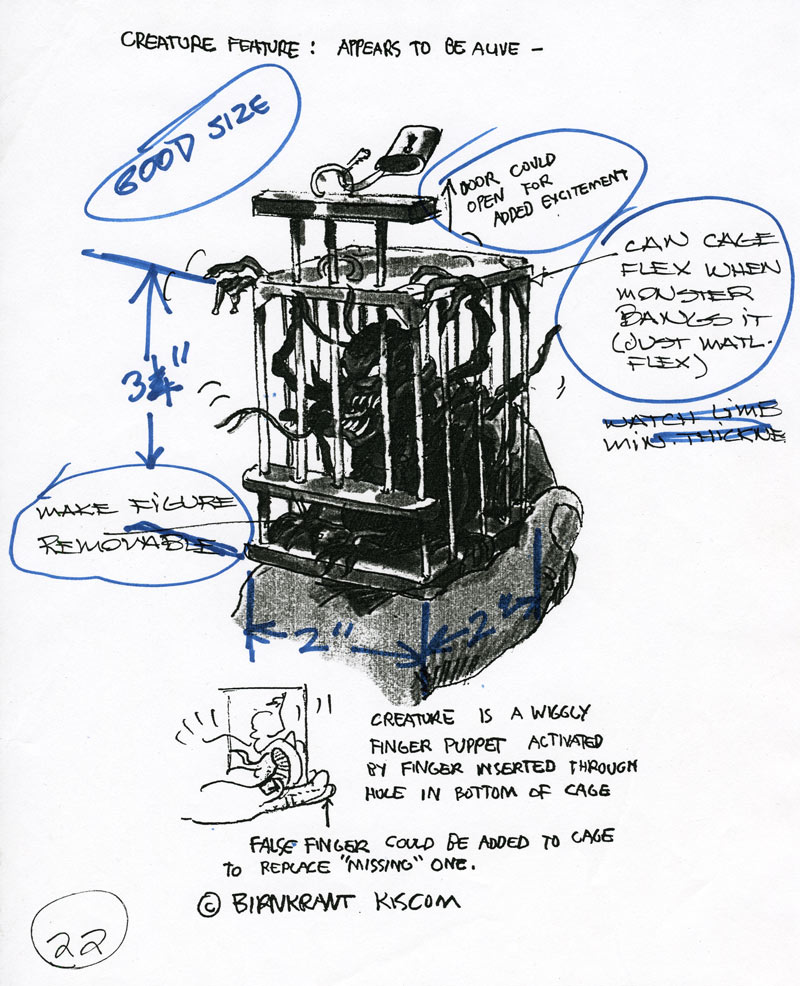 CREATURE FEATURE: APPEARS TO BE ALIVE -
GOOD SIZE
DOOR COULD
OPEN FOR
ADDED EXCITEMENT
CAN CAGE
FLEX WHEN
MONSTER
BANGS IT
(JUST MATL.
FLEX)
WATCH LIMB
MIN. THICKNE
3¼"
MAKE FIGURE
REMOVABLE
2"
2"
CREATURE IS A WIGGLY
FINGER PUPPET ACTIVATED
BY FINGER INSERTED THROUGH
HOLE IN BOTTOM OF CAGE
FALSE FINGER COULD BE ADDED TO CAGE
TO REPLACE "MISSING" ONE.
© BIRNKRANT KISCOM
22